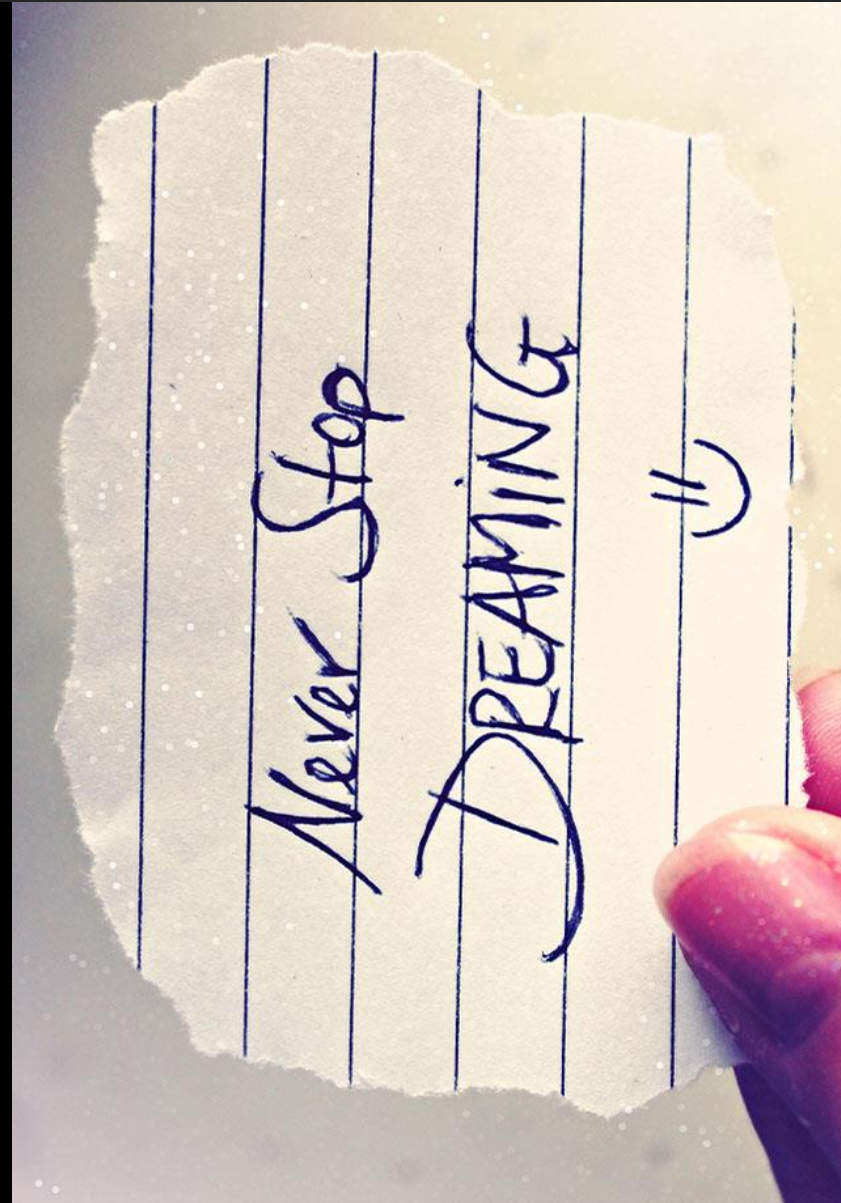 Never Stop
DREAMiNG
=)